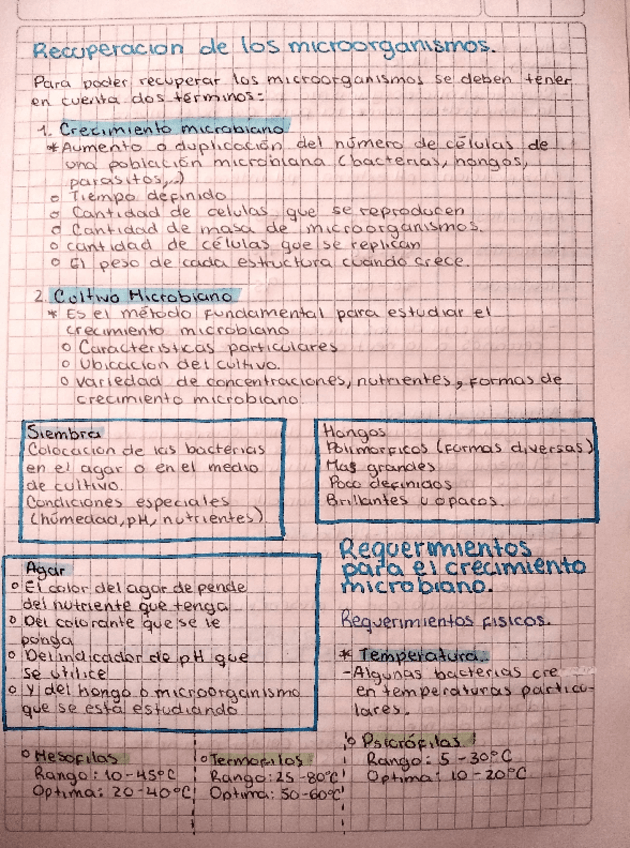 Recuperacion de los microorganismos.
Para poder recuperar los microorganismos se deben tener
en cuenta dos términos:
1. Crecimiento microbiano
* Aumento o duplicación del número de células de
una población microbiana (bacterias, hongos,
parasitos,..)
o Tiempo definido
o Cantidad de celulas que se reproducen
o Cantidad de masa de microorganismos.
o cantidad de células que se replican
o El peso de cada estructura cuando crece.
2. Cultivo Microbiano
* Es el método fundamental para estudiar el
crecimiento microbiano
o Caracteristicas particulares
o Ubicacion del cultivo.
o variedad de concentraciones, nutrientes, formas de
crecimiento microbiano.
Siembra
Colocacion de las bacterias
en el agar o en el medio
de cultivo.
Condiciones especiales
(húmedad, pH, nutrientes)
Hongos
Polimorficos (formas diversas)
Mas grandes
Poco definidos
Brillantes u opacos.
Agar
o El color del agar depende
del nutriente que tenga
o Del colorante que se le
ponga
o Del indicador de pH que
se utilice
o Y del hongo o microorganismo
que se está estudiando
Requerimientos
para el crecimiento
microbiano.
Requerimientos fisicos.
* Temperatura.
- Algunas bacterias cre
en temperaturas particu-
lares.
o Mesofilas
Rango: 10-45°C
Optima: 20-40°C
o Termofilos
Rango: 25-80°C
Optima: 50-60°C
o Psicrófilas
Rango: 5-30°C
Optima: 10-20°C